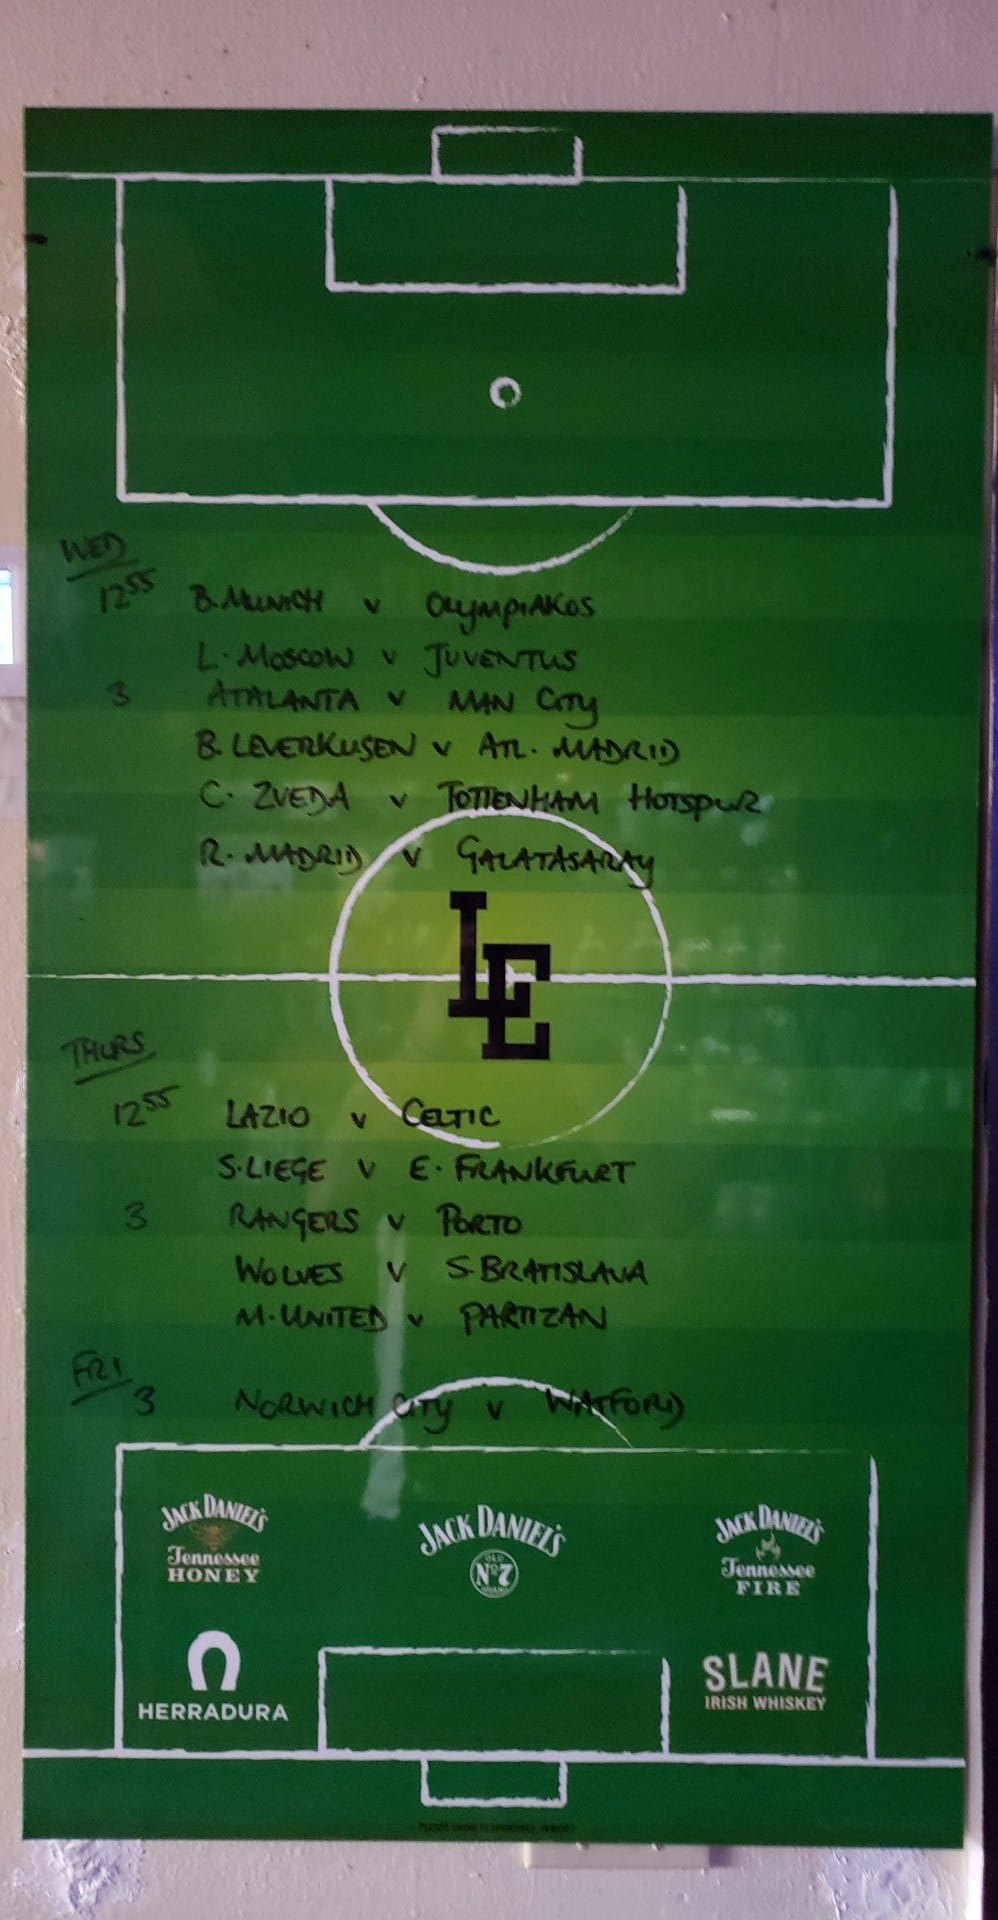 WED
12 55 B. MUNICH v OLYMPIAKOS
L. MOSCOW v JUVENTUS
3 ATALANTA v MAN CITY
B. LEVERKUSEN v ATL. MADRID
C. ZVEDA v TOTTENHAM HOTSPUR
R. MADRID v GALATASARAY
LE
THURS
12 55 LAZIO v CELTIC
S. LIEGE v E. FRANKFURT
3 RANGERS v PORTO
WOLVES v S. BRATISLAVA
M. UNITED v PARTIZAN
FRI
3 NORWICH CITY v WATFORD
JACK DANIEL'S
Tennessee
HONEY
JACK DANIEL'S
OLD
Nº7
BRAND
JACK DANIEL'S
Tennessee
FIRE
HERRADURA
SLANE
IRISH WHISKEY